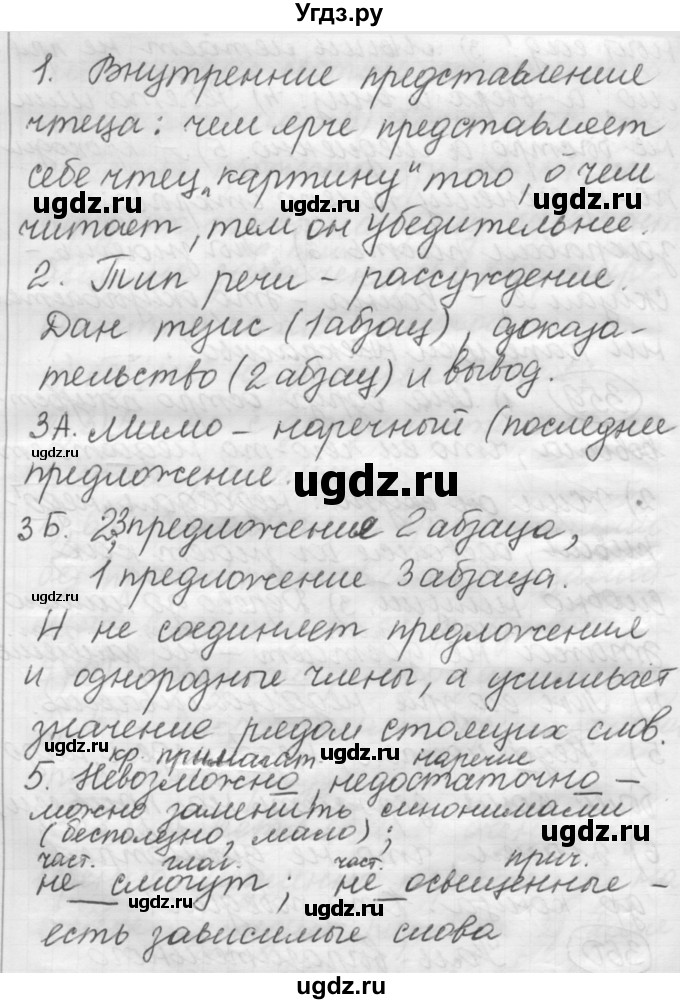 Угдз.ру
1. Внутренние представления
чтеца: чем ярче представляет
себе чтец „картину" того, о чем
ugdz.ru ugdz.ru ugdz.ru
читает, тем он убедительнее.
2. Тип речи – рассуждение.
Дан тезис (1 абзац), доказа-
тельство (2 абзац) и вывод.
3А. Мимо – наречный (последнее
предложение.
ugdz.ru ugdz.ru
3 Б. 2,3 предложение 2 абзаца,
1 предложение 3 абзаца.
ugdz.ru
И не соединяет предложения
и однородные члены, а усиливает
значение рядом стоящих слов.
ugdz.ru ugdz.ru
кр. прилагат. наречие
5. Невозможно, недостаточно –
можно заменить синонимами
(бесполезно, мало);
ugdz.ru
част. глаг. част. прич.
не смогут; не освещенные –
ugdz.ru ugdz.ru
есть зависимые слова